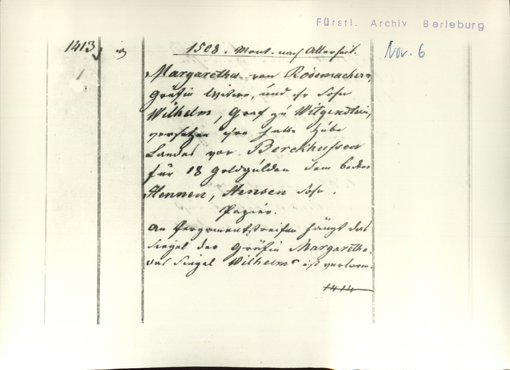 Fürstl. Archiv Berleburg
1413
1508. Mont. nach Allerheil.
Nov. 6
Margaretha von Rodemachern,
Gräfin Witwe, und ihr Sohn
Wilhelm, Graf zu Witgenstein,
versetzen ihre halbe Hube
Landes vor Berckhusen
für 18 Goldgulden dem
Hennen, Hensen Sohn.
Papier.
An Pergamentstreifen hängt das
Siegel der Gräfin Margaretha.
das Siegel Wilhelms ist verloren
1414